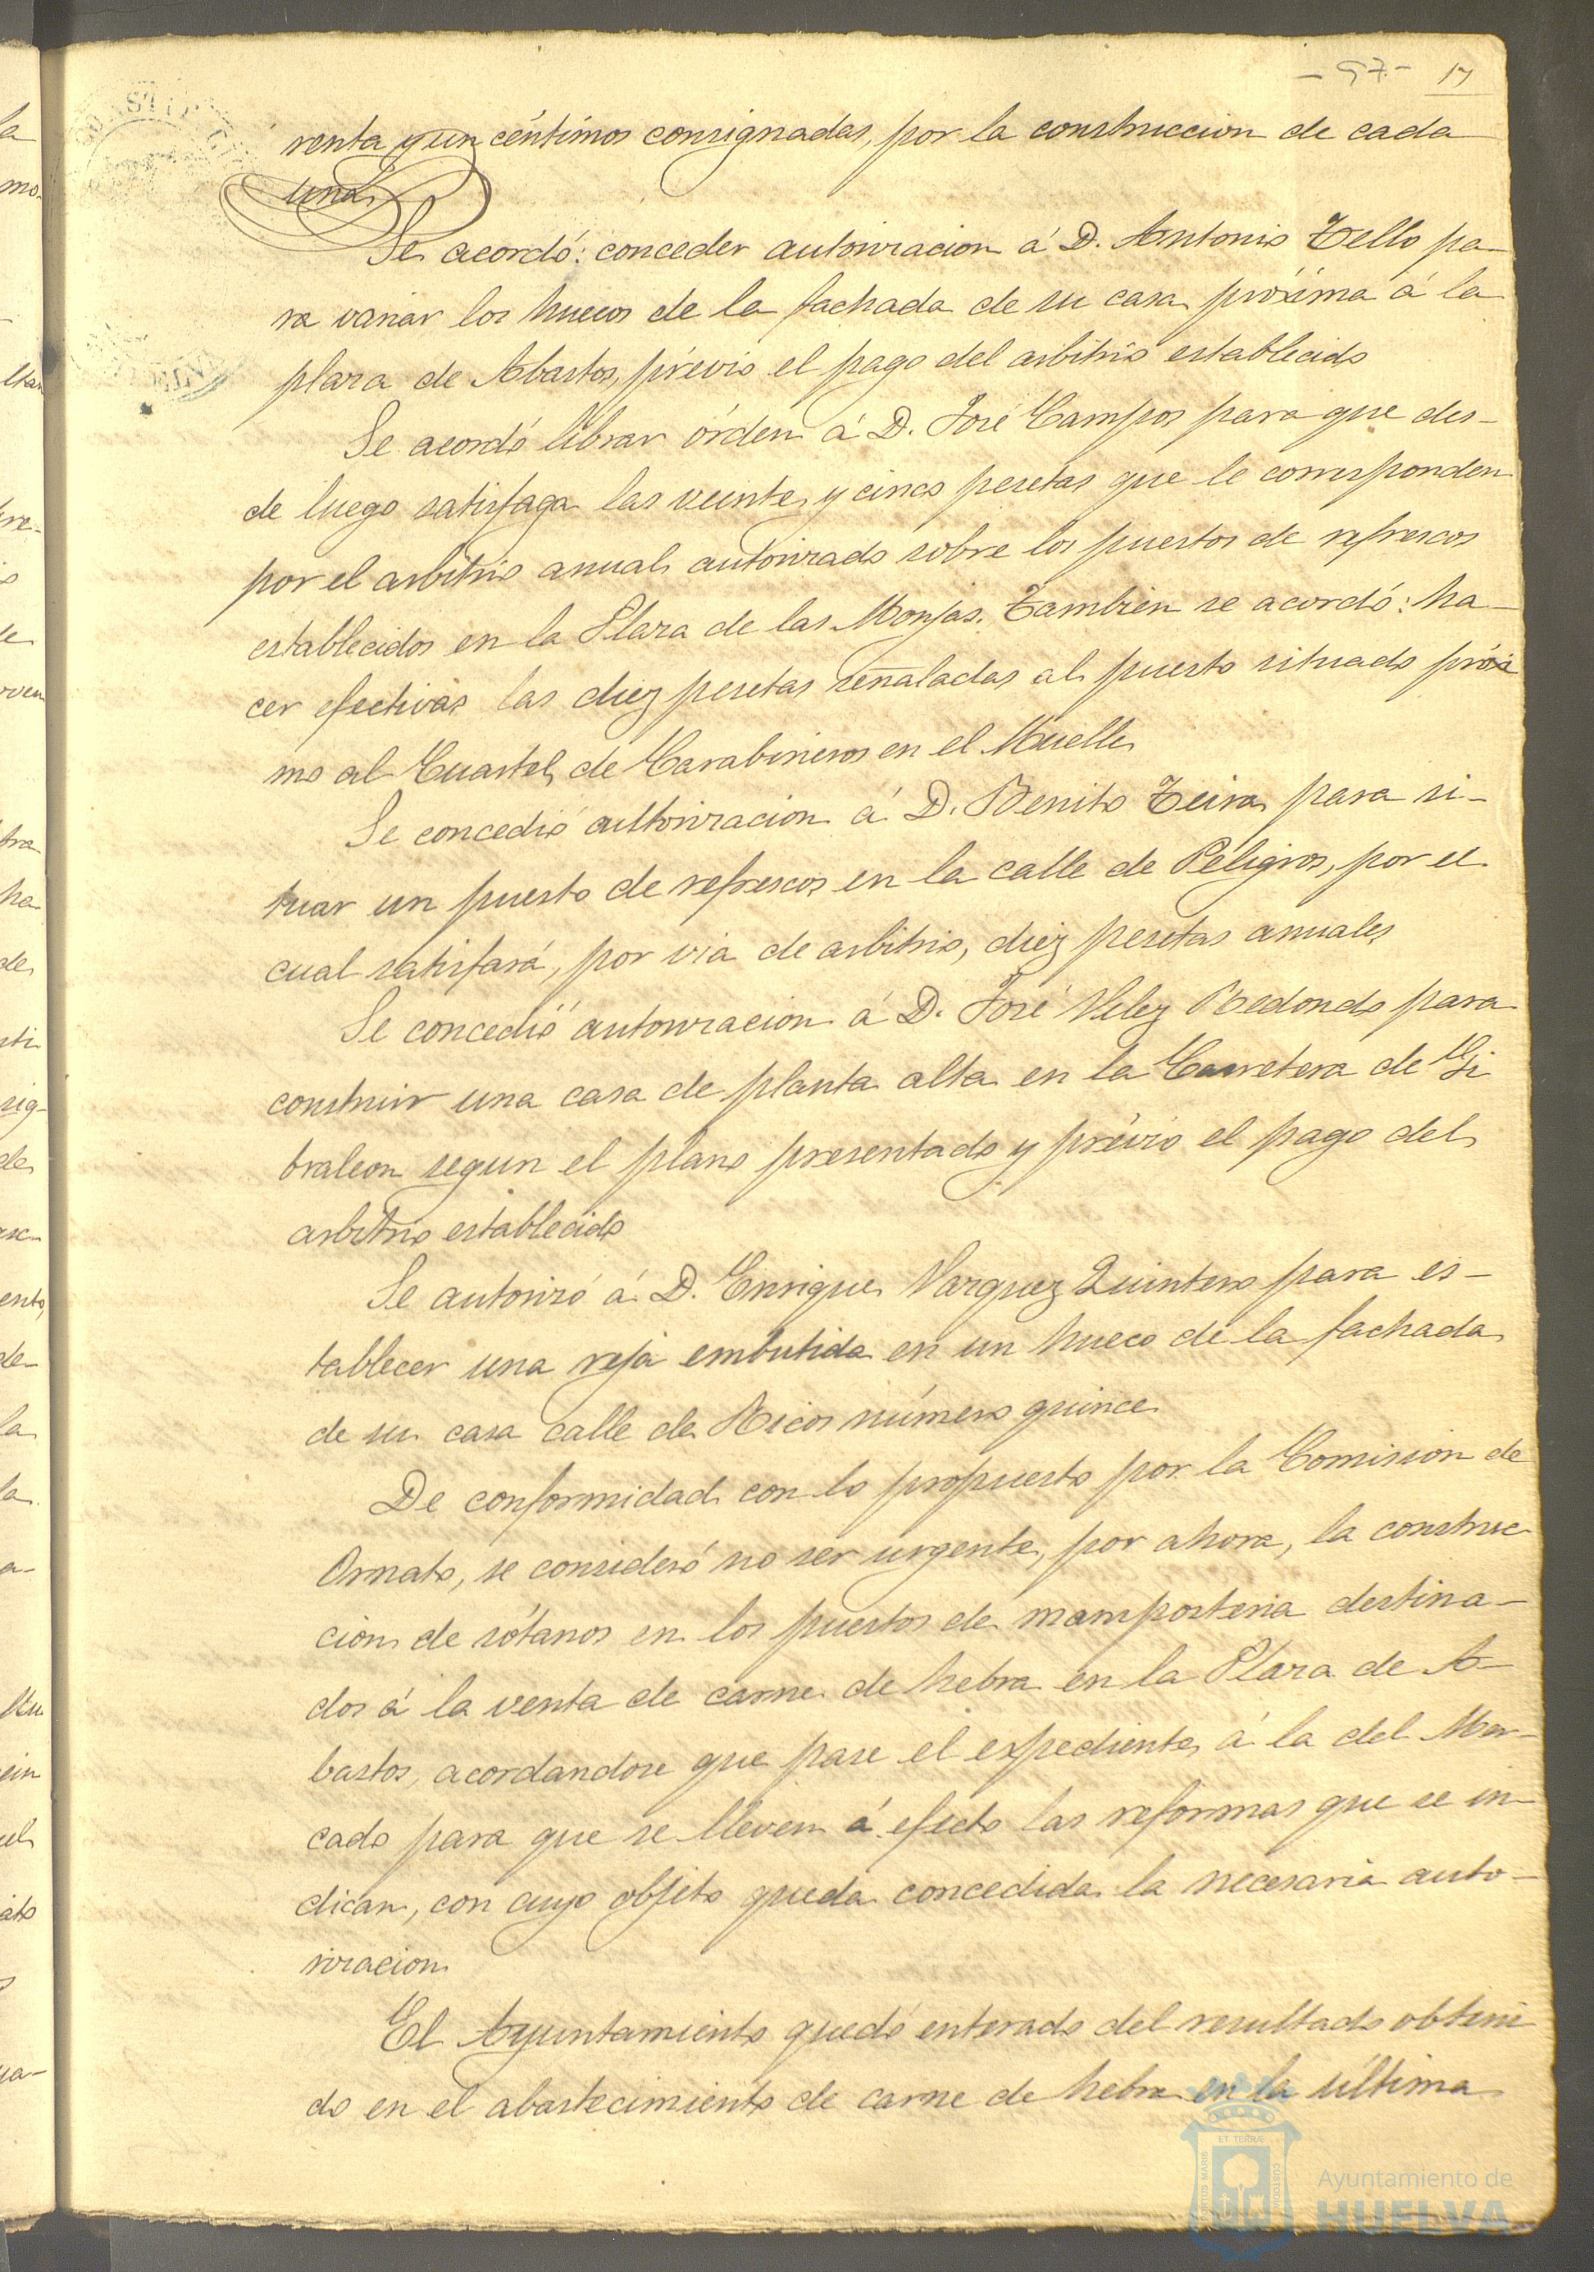 - 97 - 17
renta y un céntimos consignadas, por la construccion de cada
una.
Se acordó: conceder autorizacion á D. Antonio Tello pa-
ra variar los huecos de la fachada de su casa próxima á la
plaza de Abastos, prévio el pago del arbitrio establecido
Se acordó librar órden á D. José Campos para que des-
de luego satisfaga las veinte y cinco pesetas que le corresponden
por el arbitrio anual autorizado sobre los puestos de refrescos
establecidos en la Plaza de las Monjas. Tambien se acordó: ha-
cer efectivas las diez pesetas señaladas al puesto situado próxi
mo al Cuartel de Carabineros en el Muelle
Se concedió autorizacion á D. Benito Teira para si-
tuar un puesto de refrescos en la calle de Peligros, por el
cual satisfará, por via de arbitrio, diez pesetas anuales
Se concedió autorizacion á D. José Velez Redondo para
construir una casa de planta alta en la Carretera de Gi
braleon segun el plano presentado y prévio el pago del
arbitrio establecido
Se autorizó á D. Enrique Vazquez Quintero para es-
tablecer una reja embutida en un hueco de la fachada
de su casa calle de Ricos número quince
De conformidad con lo propuesto por la Comision de
Ornato, se consideró no ser urgente, por ahora, la construc
cion de sótanos en los puestos de mamposteria destina-
dos á la venta de carne de hebra en la Plaza de A-
bastos, acordandose que pase el expediente á la del Mer-
cado para que se lleven á efecto las reformas que se in-
dican, con cuyo objeto queda concedida la necesaria auto-
rizacion
El Ayuntamiento quedó enterado del resultado obteni
do en el abastecimiento de carne de hebra en la última
Ayuntamiento de
HUELVA